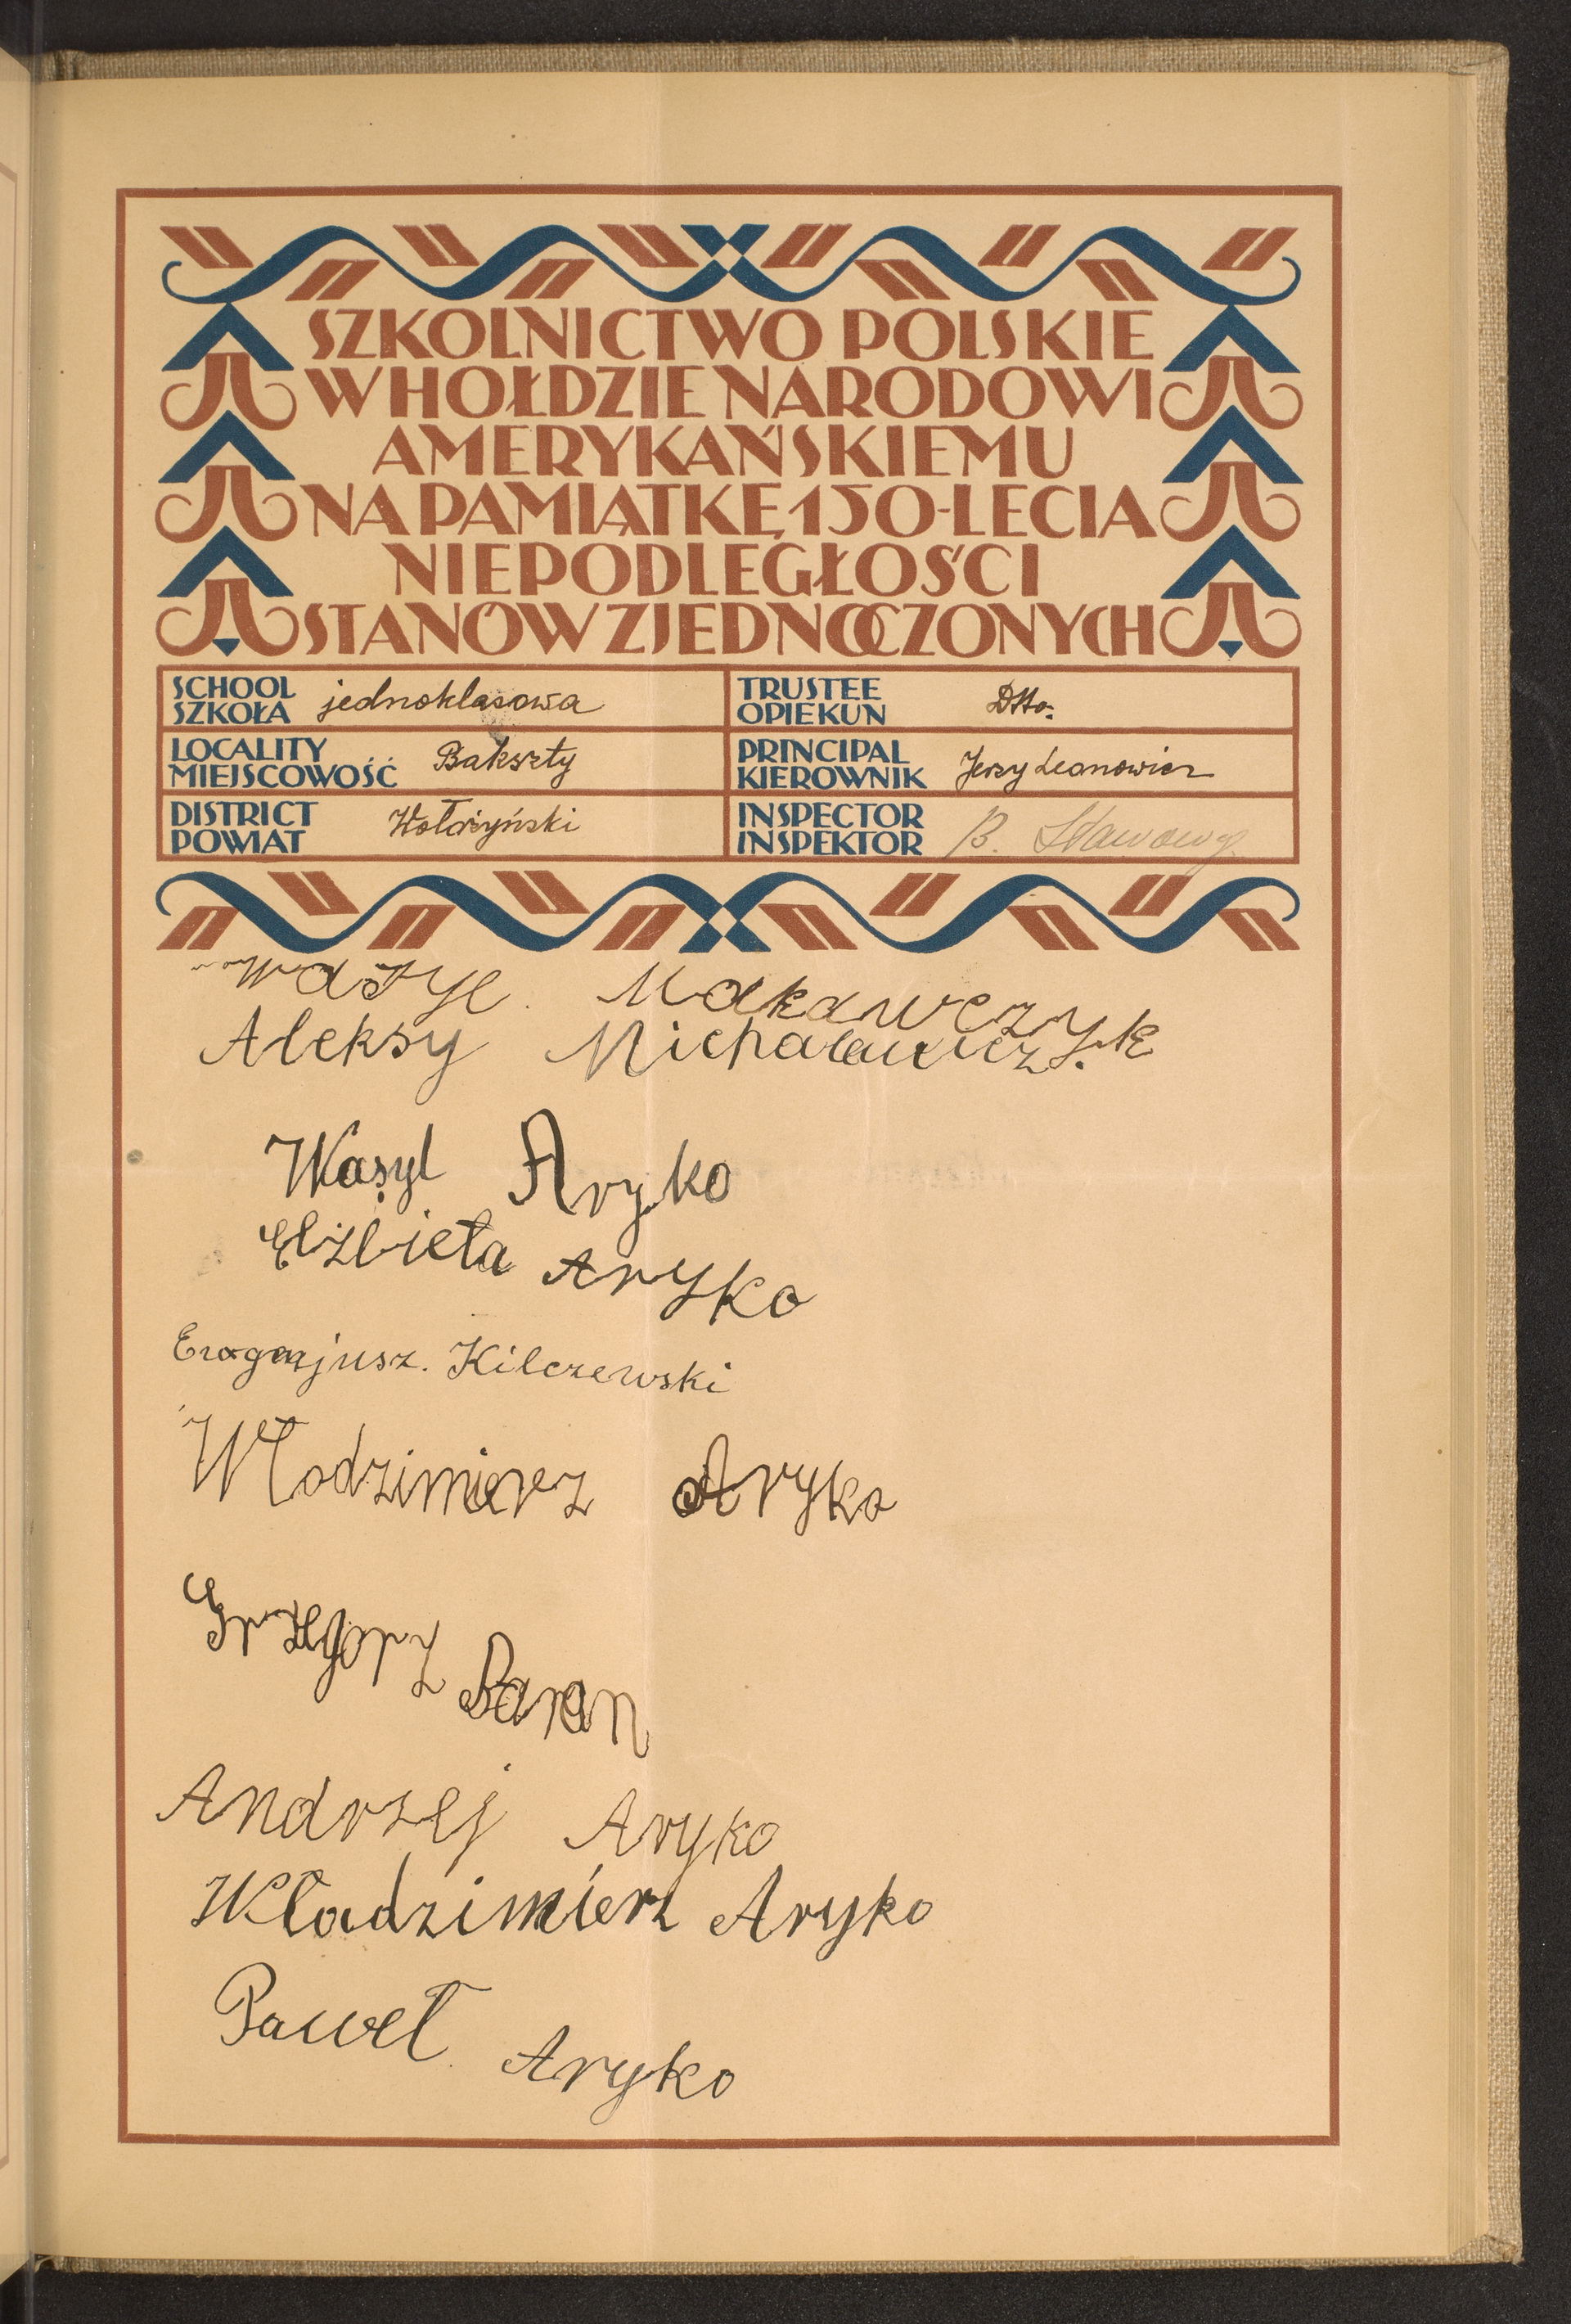 SZKOLNICTWO POLSKIE
W HOŁDZIE NARODOWI
AMERYKAŃSKIEMU
NA PAMIĄTKĘ 150-LECIA
NIEPODLEGŁOŚCI
STANÓW ZJEDNOCZONYCH
SCHOOL
SZKOŁA jednoklasowa
TRUSTEE
OPIEKUN
LOCALITY
MIEJSCOWOŚĆ Bakszty
PRINCIPAL
KIEROWNIK Jerzy Leonowicz
DISTRICT
POWIAT Wołożyński
INSPECTOR
INSPEKTOR B.
Wasyl Makawczyk
Aleksy Michalewicz.
Wasyl Aryko
Elżbieta Aryko
Kilczewski
Włodzimierz Aryko
Grzegorz Baran
Andrzej Aryko
Władzimierz Aryko
Paweł Aryko